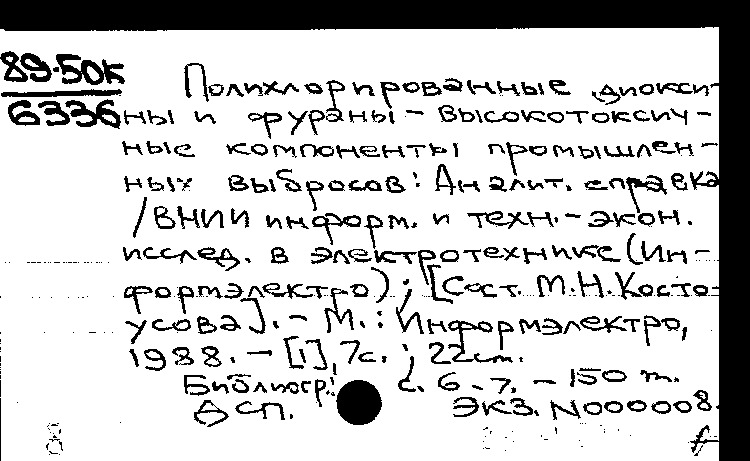 89-50К
6336
Полихлорированные диокси-
ны и фураны - высокотоксич-
ные компоненты промышлен-
ных выбросов: Аналит. справка
/ВНИИ информ. и техн.-экон.
исслед. в электротехнике (Ин-
формэлектро); [Сост. М.Н.Косто-
усова]. - М.: Информэлектро,
1988. - [1], 7с.; 22см.
Библиогр.: с. 6-7. - 150 т.
ДСП. ЭКЗ. N000008.